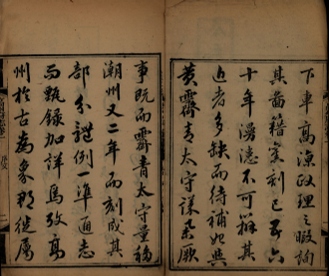 下車高涼政理之暇詢
其舊籍隻刻已歷六
十年漫漶不可辨其
近者多缺而待補如與
黃霽青太守謀葢厥
事既而霽青太守量移
潮州又二年而刻成其
部分體例一準通志
而甄錄加詳焉攷高
州於古為象郡縱屬